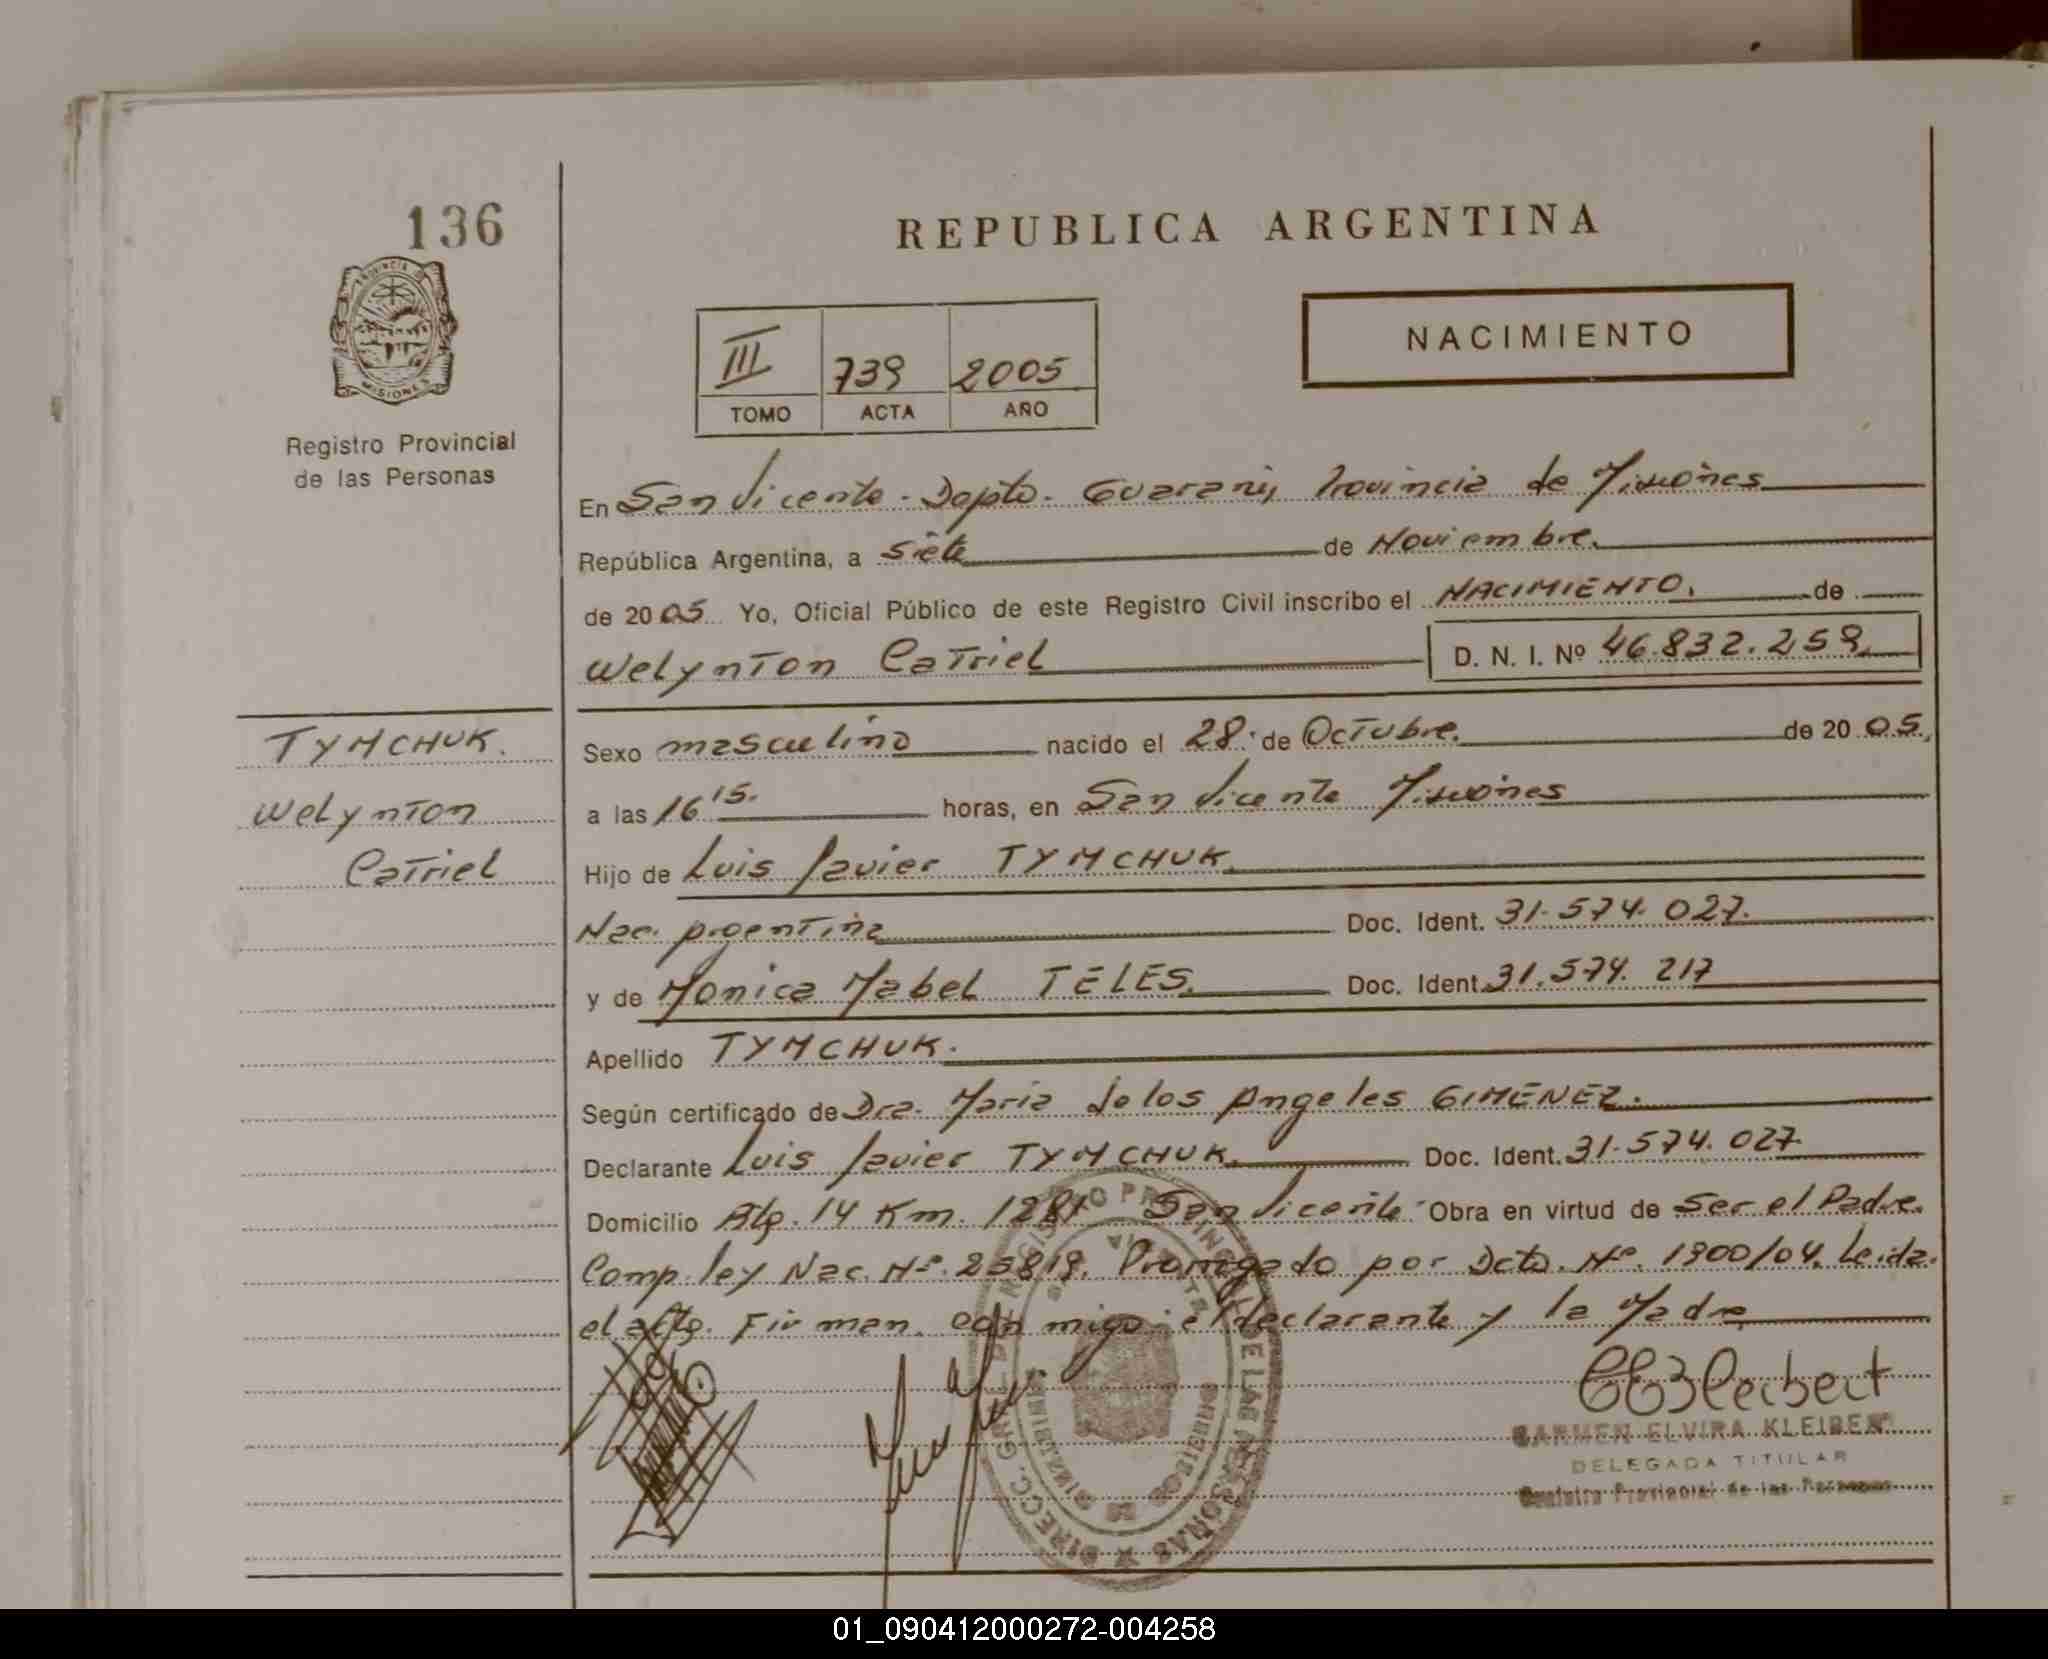 136
PROVINCIA DE
MISIONES
Registro Provincial
de las Personas
REPUBLICA ARGENTINA
NACIMIENTO
III 739 2005
TOMO ACTA AÑO
En San Vicente - Dpto. Guarani, Provincia de Misiones
República Argentina, a siete de Noviembre.
de 2005 Yo, Oficial Público de este Registro Civil inscribo el NACIMIENTO. de
Welynton Catriel D. N. I. Nº 46.832.259.
TYMCHUK.
Welynton
Catriel
Sexo masculino nacido el 28. de Octubre. de 2005.
a las 16 15. horas, en San Vicente Misiones
Hijo de Luis Javier TYMCHUK.
Nac. Argentina Doc. Ident. 31.574.027.
y de Monica Mabel TELES. Doc. Ident. 31.574.217
Apellido TYMCHUK.
Según certificado de Dra. Maria de los Angeles GIMENEZ.
Declarante Luis Javier TYMCHUK. Doc. Ident. 31.574.027.
Domicilio Alg. 14 Km. 1281 San Vicente. Obra en virtud de Ser el Padre.
Comp. ley Nac. Nº. 25819. Prorrogado por Dcto. Nº. 1900/04. Leida.
el acta. Firman. con migo el declarante y la Madre
CARMEN ELVIRA KLEIBER
DELEGADA TITULAR
Registro Provincial de las Personas
01_090412000272-004258